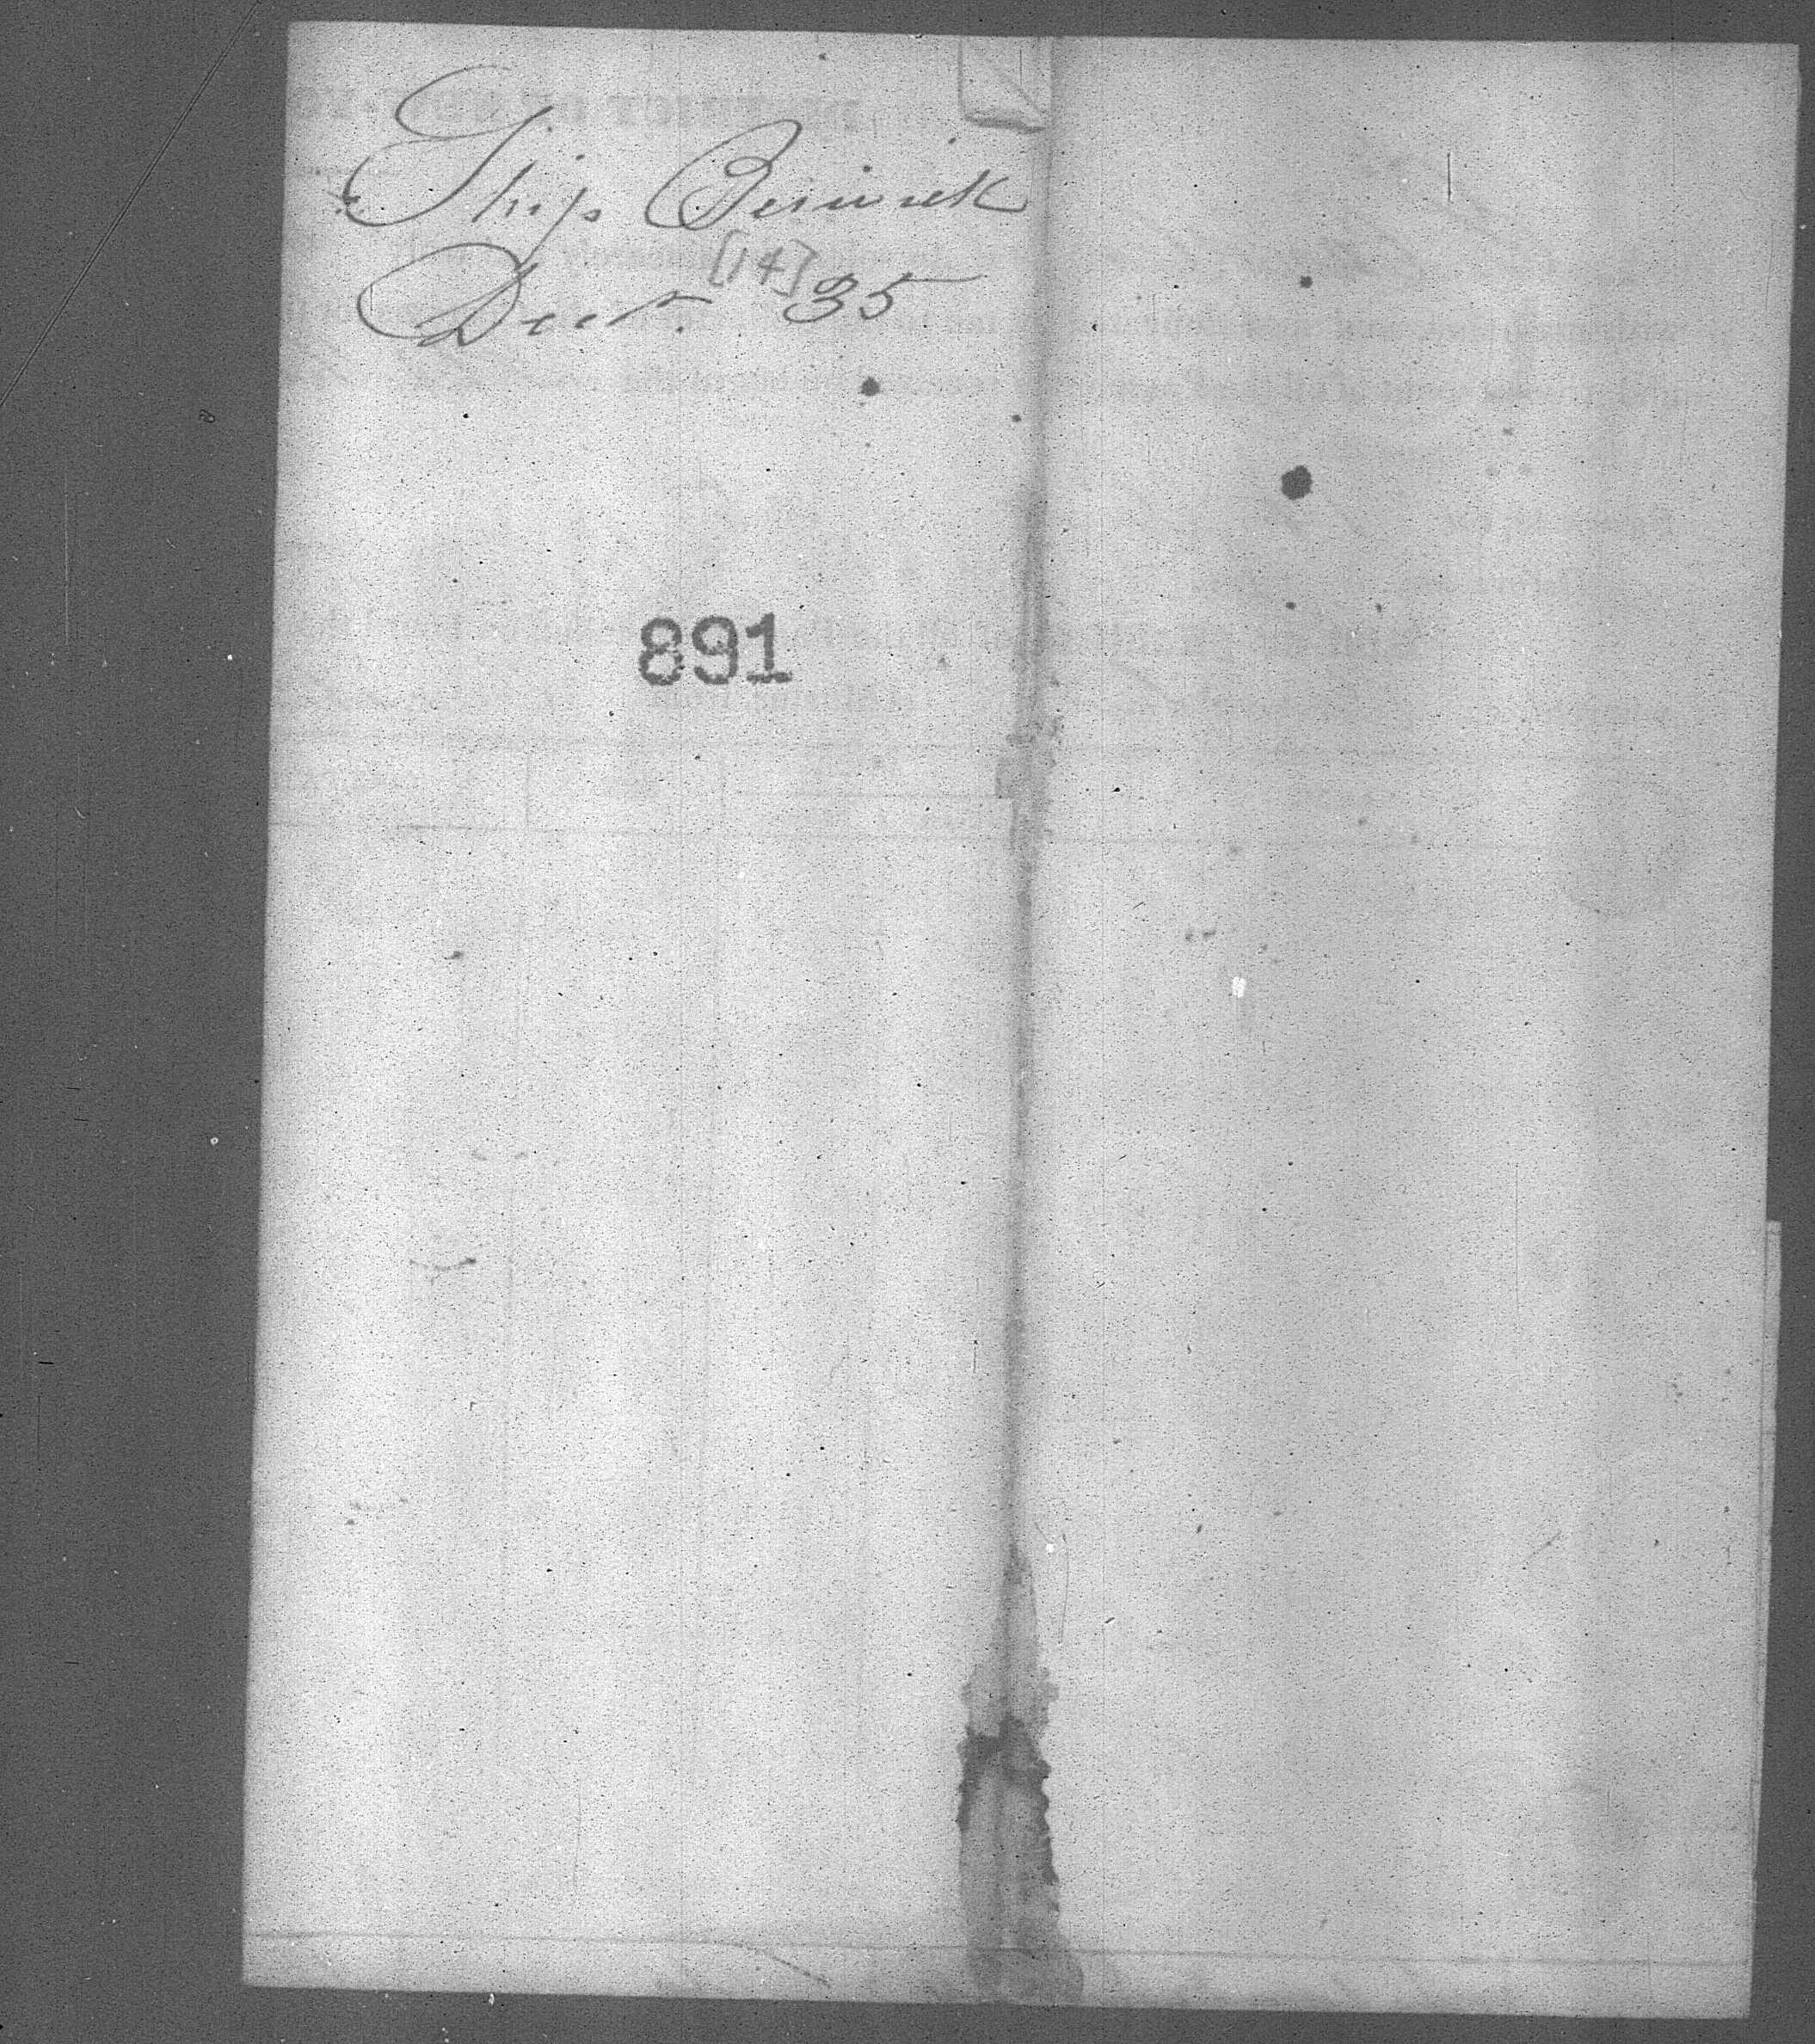 Ship Berwick
[14]
Dect. 35
891